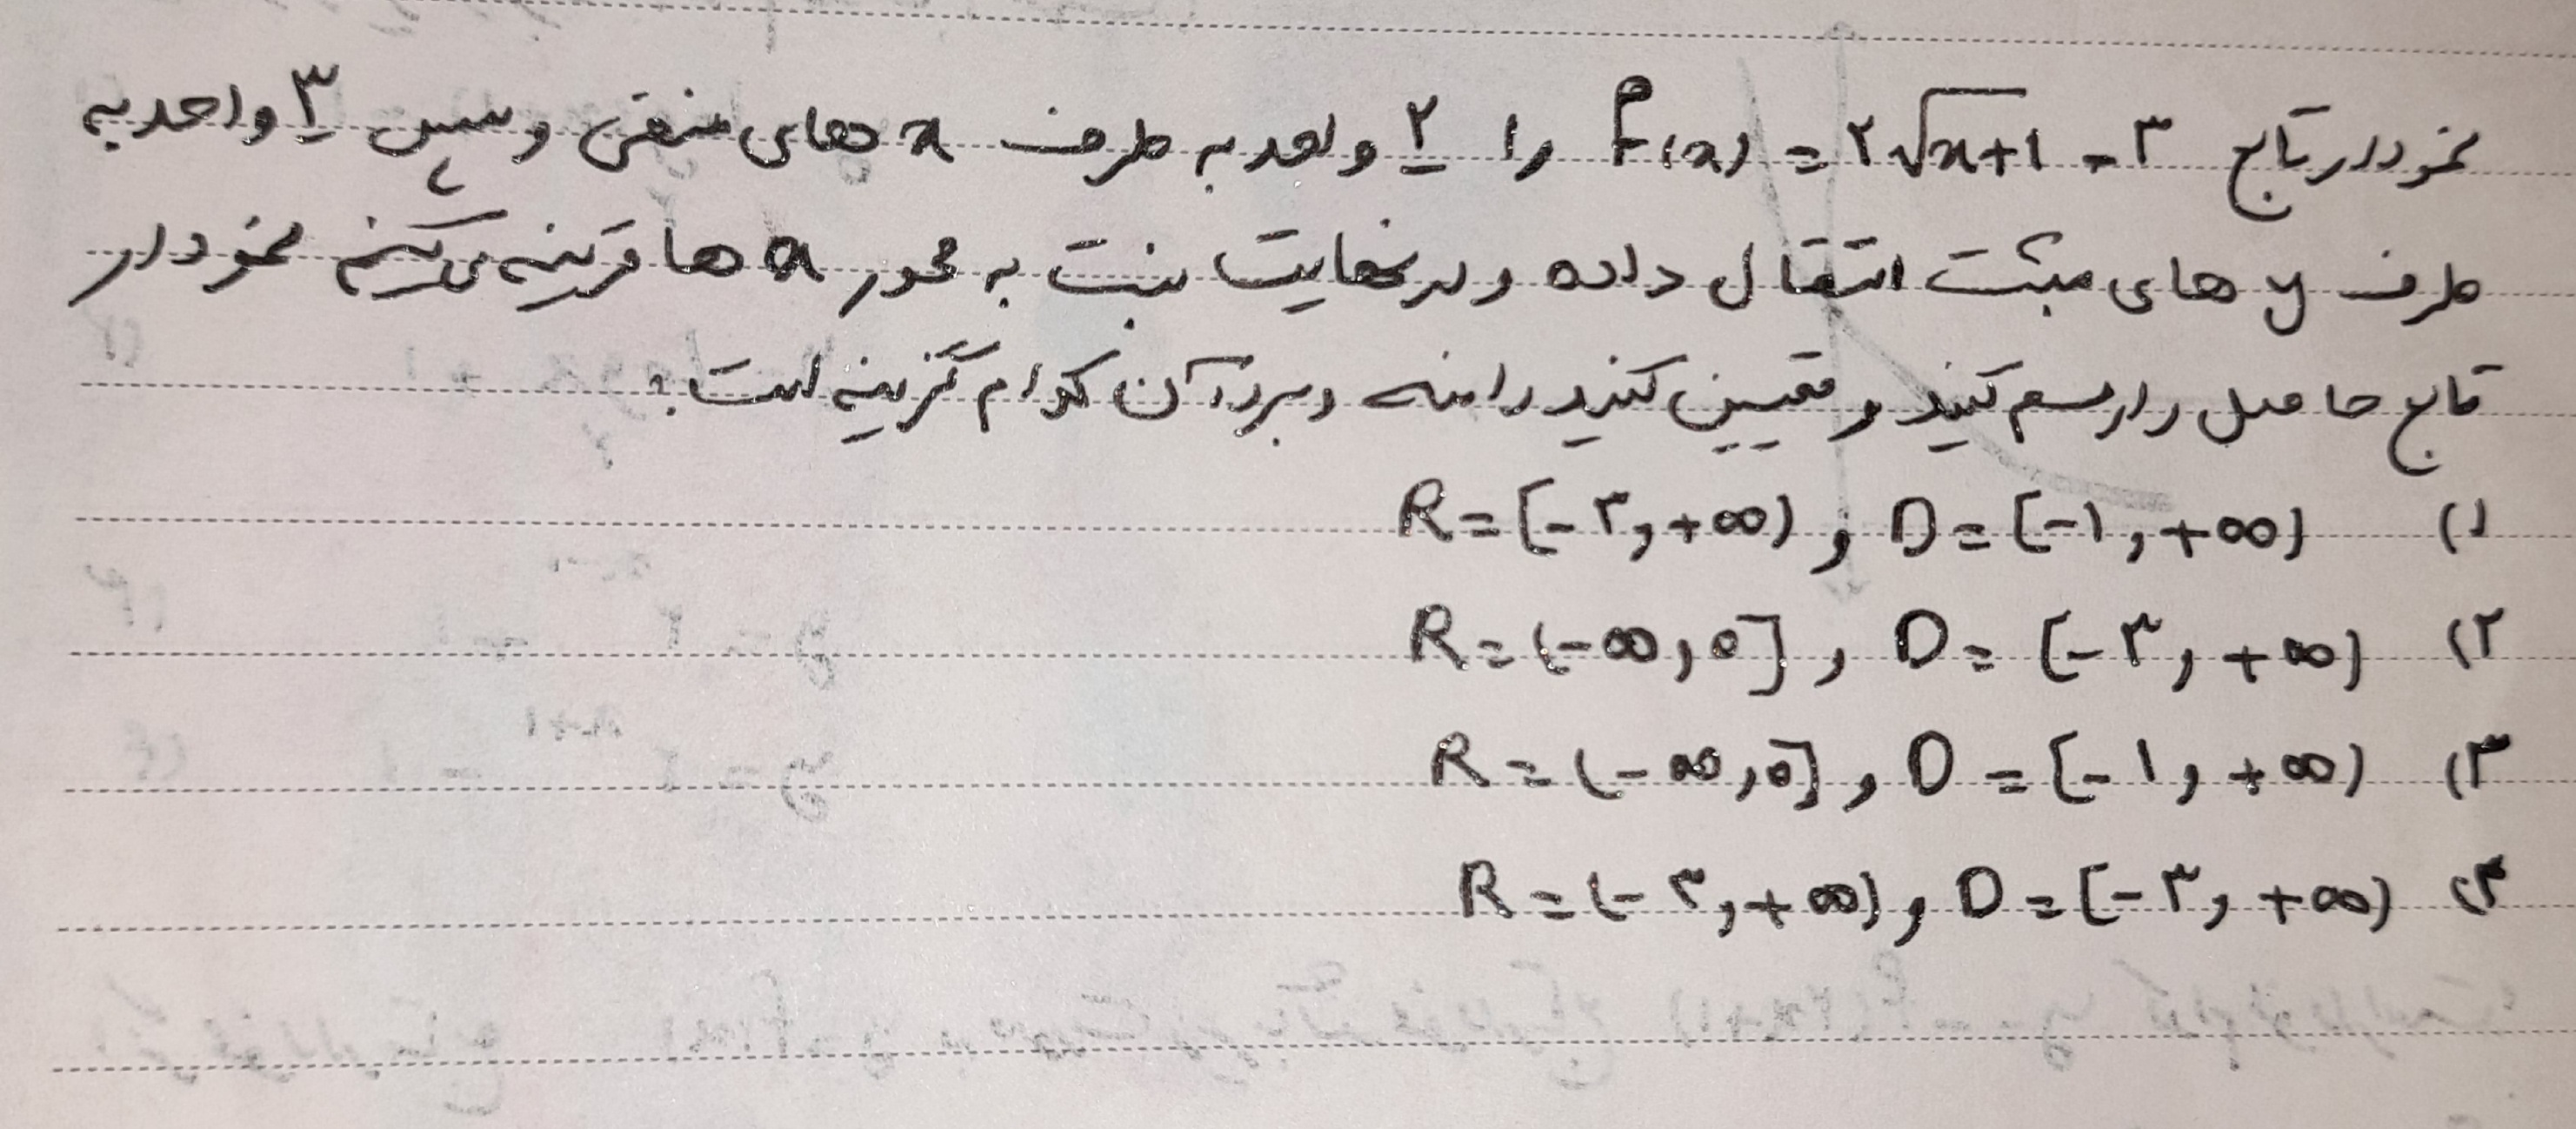 نمودار تابع f(x) = ۲√x+1 - ۳ را ۲ واحد به طرف x های منفی و سپس ۳ واحد به
طرف y های مثبت انتقال داده و در نهایت نسبت به محور x ها قرینه می‌کنیم نمودار
تابع حاصل را رسم کنید و تعیین کنید دامنه و برد آن کدام گزینه است؟
۱) D = [-۱, +∞) , R = [-۳, +∞)
۲) D = [-۳, +∞) , R = (-∞, ۰]
۳) D = [-۱, +∞) , R = (-∞, ۰]
۴) D = [-۳, +∞) , R = (-۳, +∞)